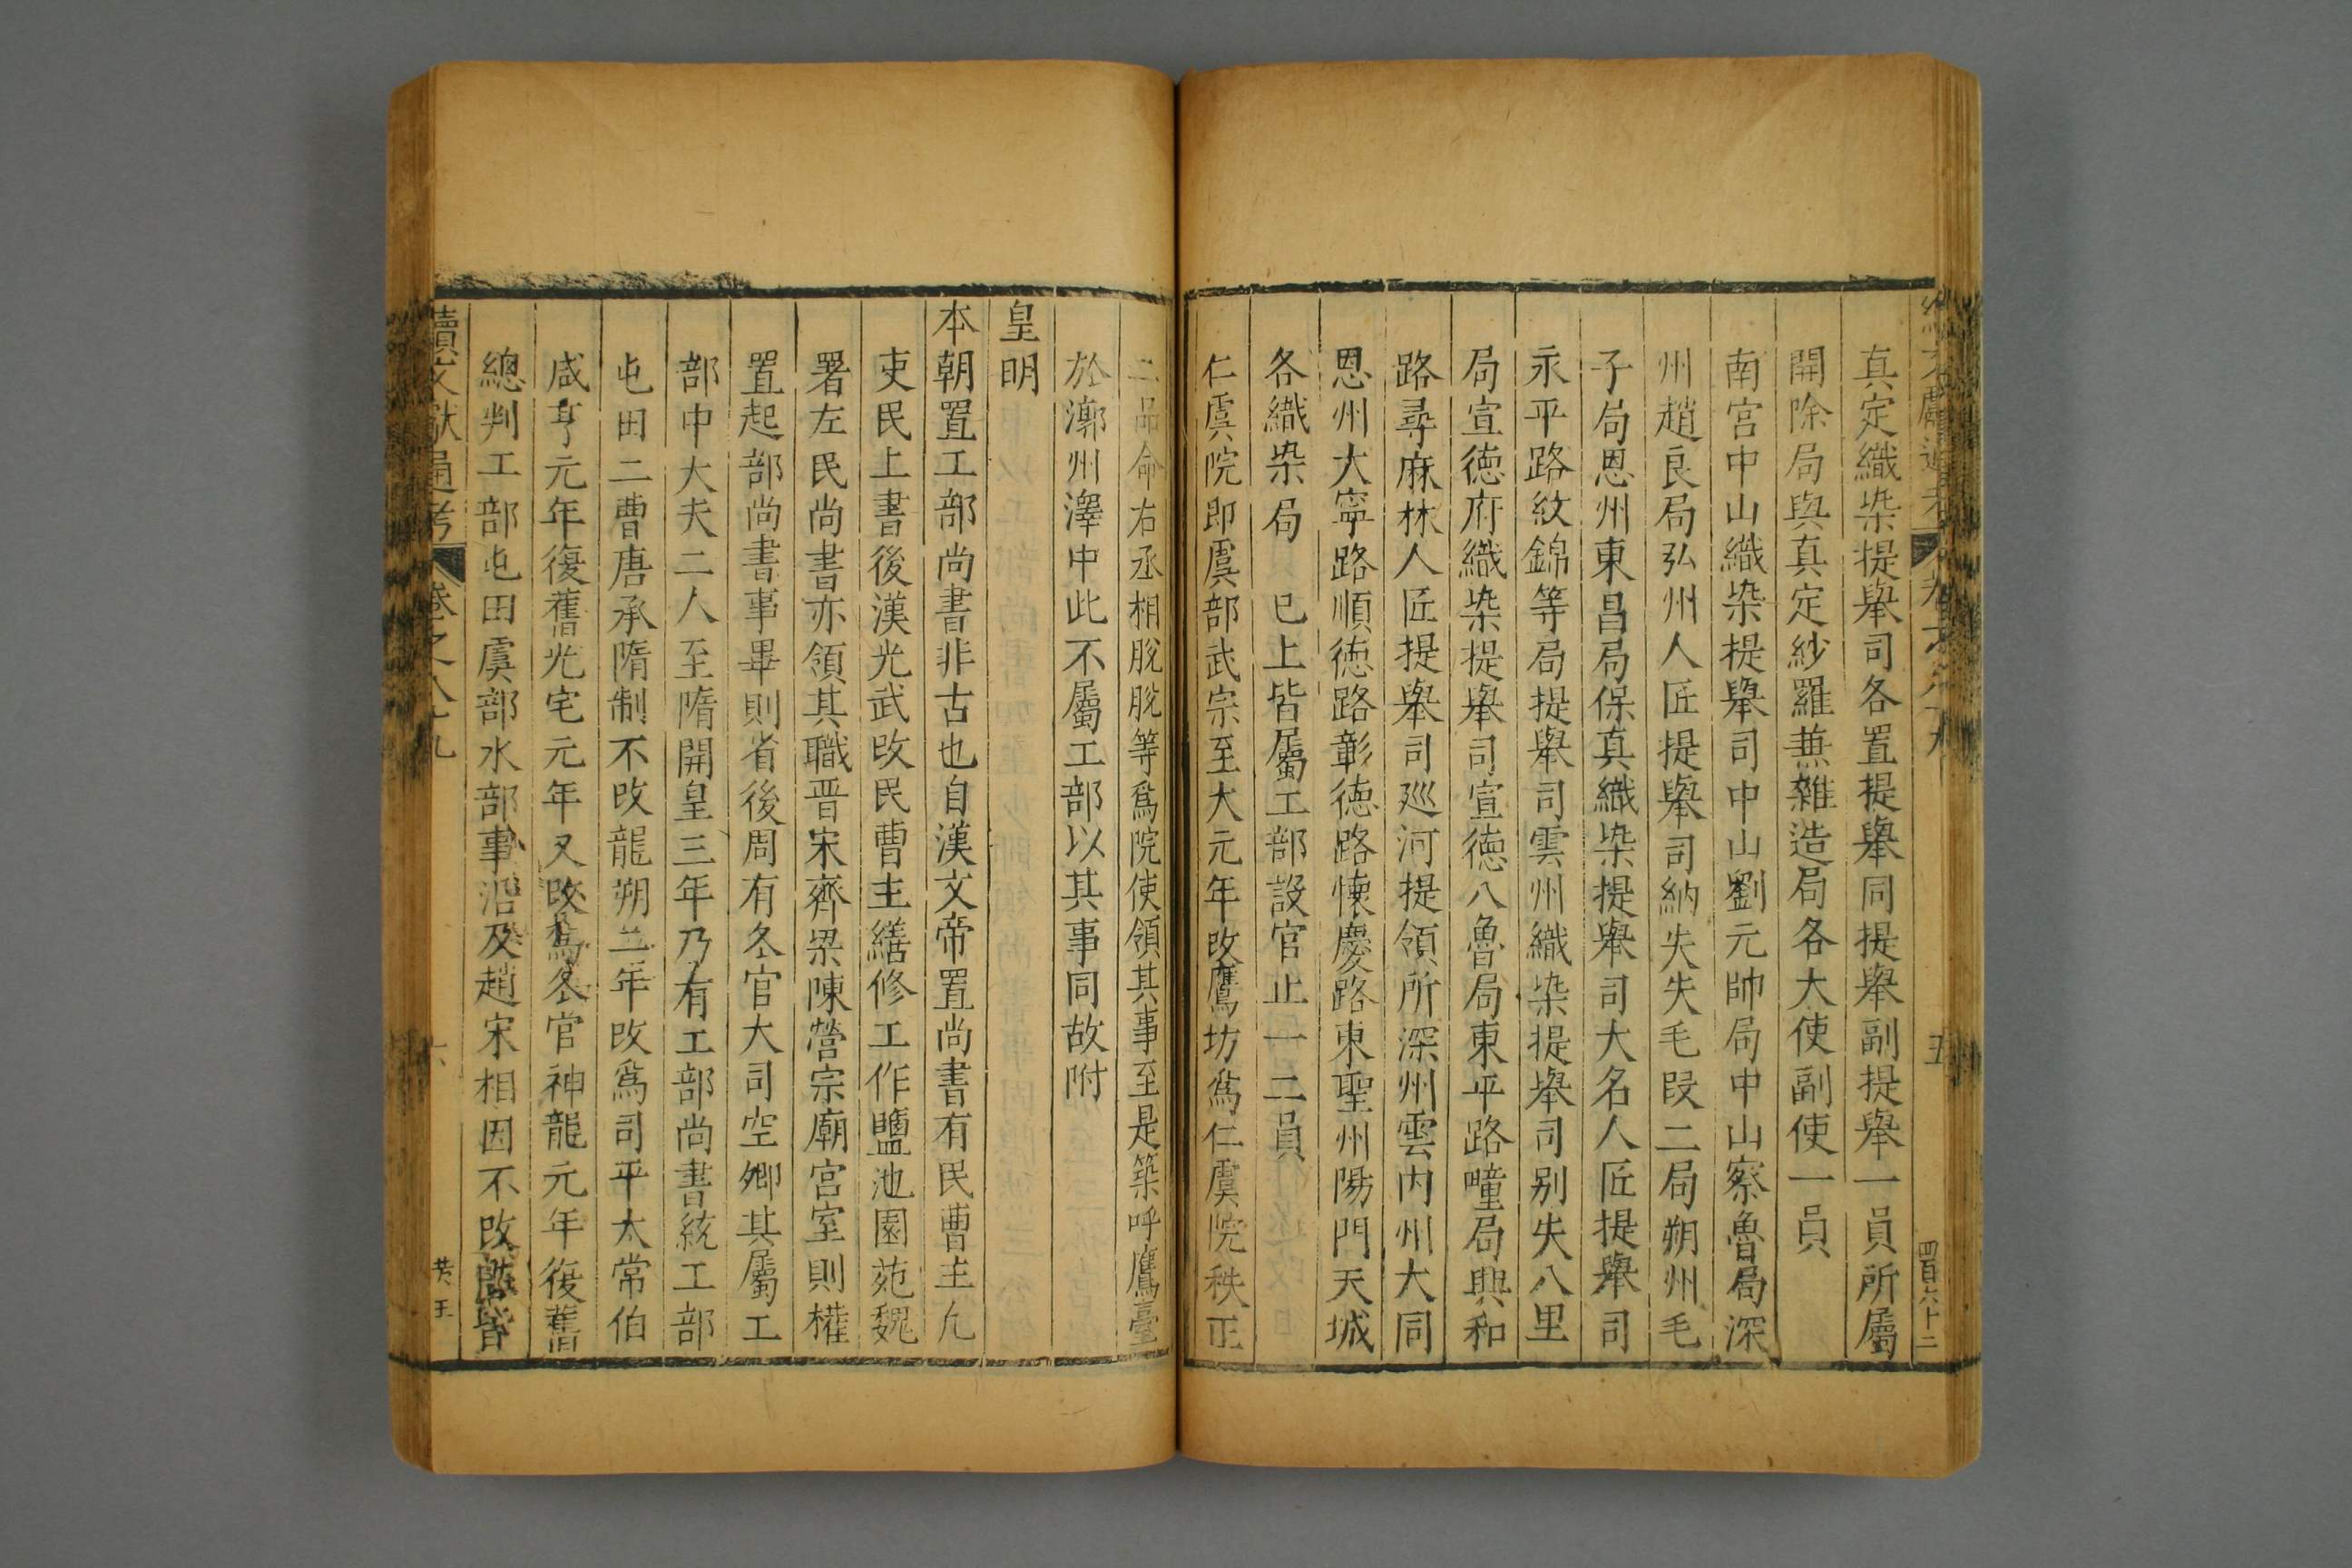 真定織染提舉司各置提舉同提舉副提舉一員所屬
開除局與真定紗羅蕪雜造局各大使副使一員
南宮中山織染提舉司中山劉元帥局中山察魯局深
州趙良局弘州人匠提舉司納失失毛段二局朔州毛
子局恩州東昌局保真織染提舉司大名人匠提舉司
永平路紋錦等局提舉司雲州織染提舉司别失八里
局宣徳府織染提舉司宣徳八魯局東平路疃局興和
路尋麻林人匠提舉司廵河提領所深州雲内州大同
恩州大寧路順徳路彰徳路懐慶路東聖州陽門天城
各織染局 已上皆屬工部設官止一二員
仁虞院即虞部武宗至大元年改鷹坊爲仁虞院秩正
二品命右丞相脫脫等爲院使領其事至是築呼鷹臺
於漷州澤中此不屬工部以其事同故附
皇明
本朝置工部尚書非古也自漢文帝置尚書有民曹主凡
吏民上書後漢光武改民曹主繕修工作鹽池園苑魏
署左民尚書亦領其職晋宋齊梁陳營宗廟宮室則權
置起部尚書事畢則省後周有冬官大司空卿其屬工
部中大夫二人至隋開皇三年乃有工部尚書統工部
屯田二曹唐承隋制不改龍朔二年改爲司平太常伯
咸亨元年復舊光宅元年又改爲冬官神龍元年復舊
總判工部屯田虞部水部事沿及趙宋相因不改
續文獻通考 卷之八十九